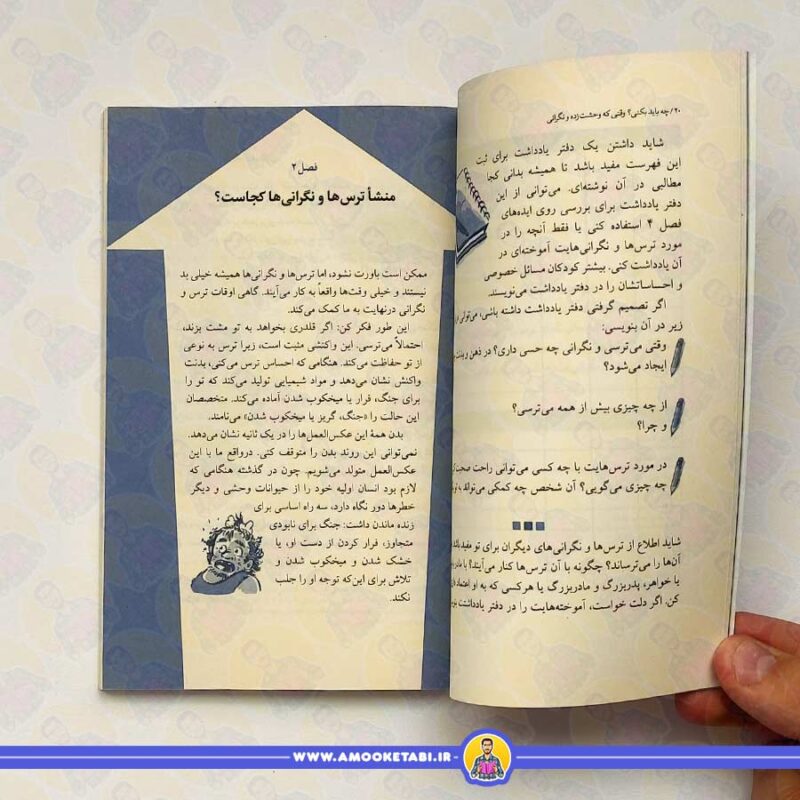 ۲۰/ چه باید بکنی؟ وقتی که وحشت‌زده و نگرانی
شاید داشتن یک دفتر یادداشت برای ثبت
این فهرست مفید باشد تا همیشه بدانی کجا
مطالبی در آن نوشته‌ای. می‌توانی از این
دفتر یادداشت برای بررسی روی ایده‌های
فصل ۴ استفاده کنی یا فقط آنچه را در
مورد ترس‌ها و نگرانی‌هایت آموخته‌ای در
آن یادداشت کنی. بیشتر کودکان مسائل خصوصی
و احساساتشان را در دفتر یادداشت می‌نویسند.
اگر تصمیم گرفتی دفتر یادداشت داشته باشی، می‌توانی
زیر در آن بنویسی:
وقتی می‌ترسی و نگرانی چه حسی داری؟ در ذهن و
ایجاد می‌شود؟
از چه چیزی بیش از همه می‌ترسی؟
و چرا؟
در مورد ترس‌هایت با چه کسی می‌توانی راحت صحبت
چه چیزی می‌گویی؟ آن شخص چه کمکی می‌تواند
شاید اطلاع از ترس‌ها و نگرانی‌های دیگران برای تو مفید باشد
آن‌ها را می‌ترساند؟ چگونه با آن ترس‌ها کنار می‌آیند؟ با
یا خواهر، پدربزرگ و مادربزرگ یا هرکسی که به او اعتماد
کن. اگر دلت خواست، آموخته‌هایت را در دفتر یادداشتت
فصل ۲
منشأ ترس‌ها و نگرانی‌ها کجاست؟
ممکن است باورت نشود، اما ترس‌ها و نگرانی‌ها همیشه خیلی بد
نیستند و خیلی وقت‌ها واقعاً به کار می‌آیند. گاهی اوقات ترس و
نگرانی درنهایت به ما کمک می‌کند.
این طور فکر کن: اگر قلدری بخواهد به تو مشت بزند،
احتمالاً می‌ترسی. این واکنشی مثبت است، زیرا ترس به نوعی
از تو حفاظت می‌کند. هنگامی که احساس ترس می‌کنی، بدنت
واکنش نشان می‌دهد و مواد شیمیایی تولید می‌کند که تو را
برای جنگ، فرار یا میخکوب شدن آماده می‌کند. متخصصان
این حالت را «جنگ، گریز یا میخکوب شدن» می‌نامند.
بدن همهٔ این عکس‌العمل‌ها را در یک ثانیه نشان می‌دهد.
نمی‌توانی این روند بدن را متوقف کنی. درواقع ما با این
عکس‌العمل متولد می‌شویم. چون در گذشته هنگامی که
لازم بود انسان اولیه خود را از حیوانات وحشی و دیگر
خطرها دور نگاه دارد، سه راه اساسی برای
زنده ماندن داشت: جنگ برای نابودی
متجاوز، فرار کردن از دست او، یا
خشک شدن و میخکوب شدن و
تلاش برای این‌که توجه او را جلب
نکند.
WWW.AMOOKETABI.IR